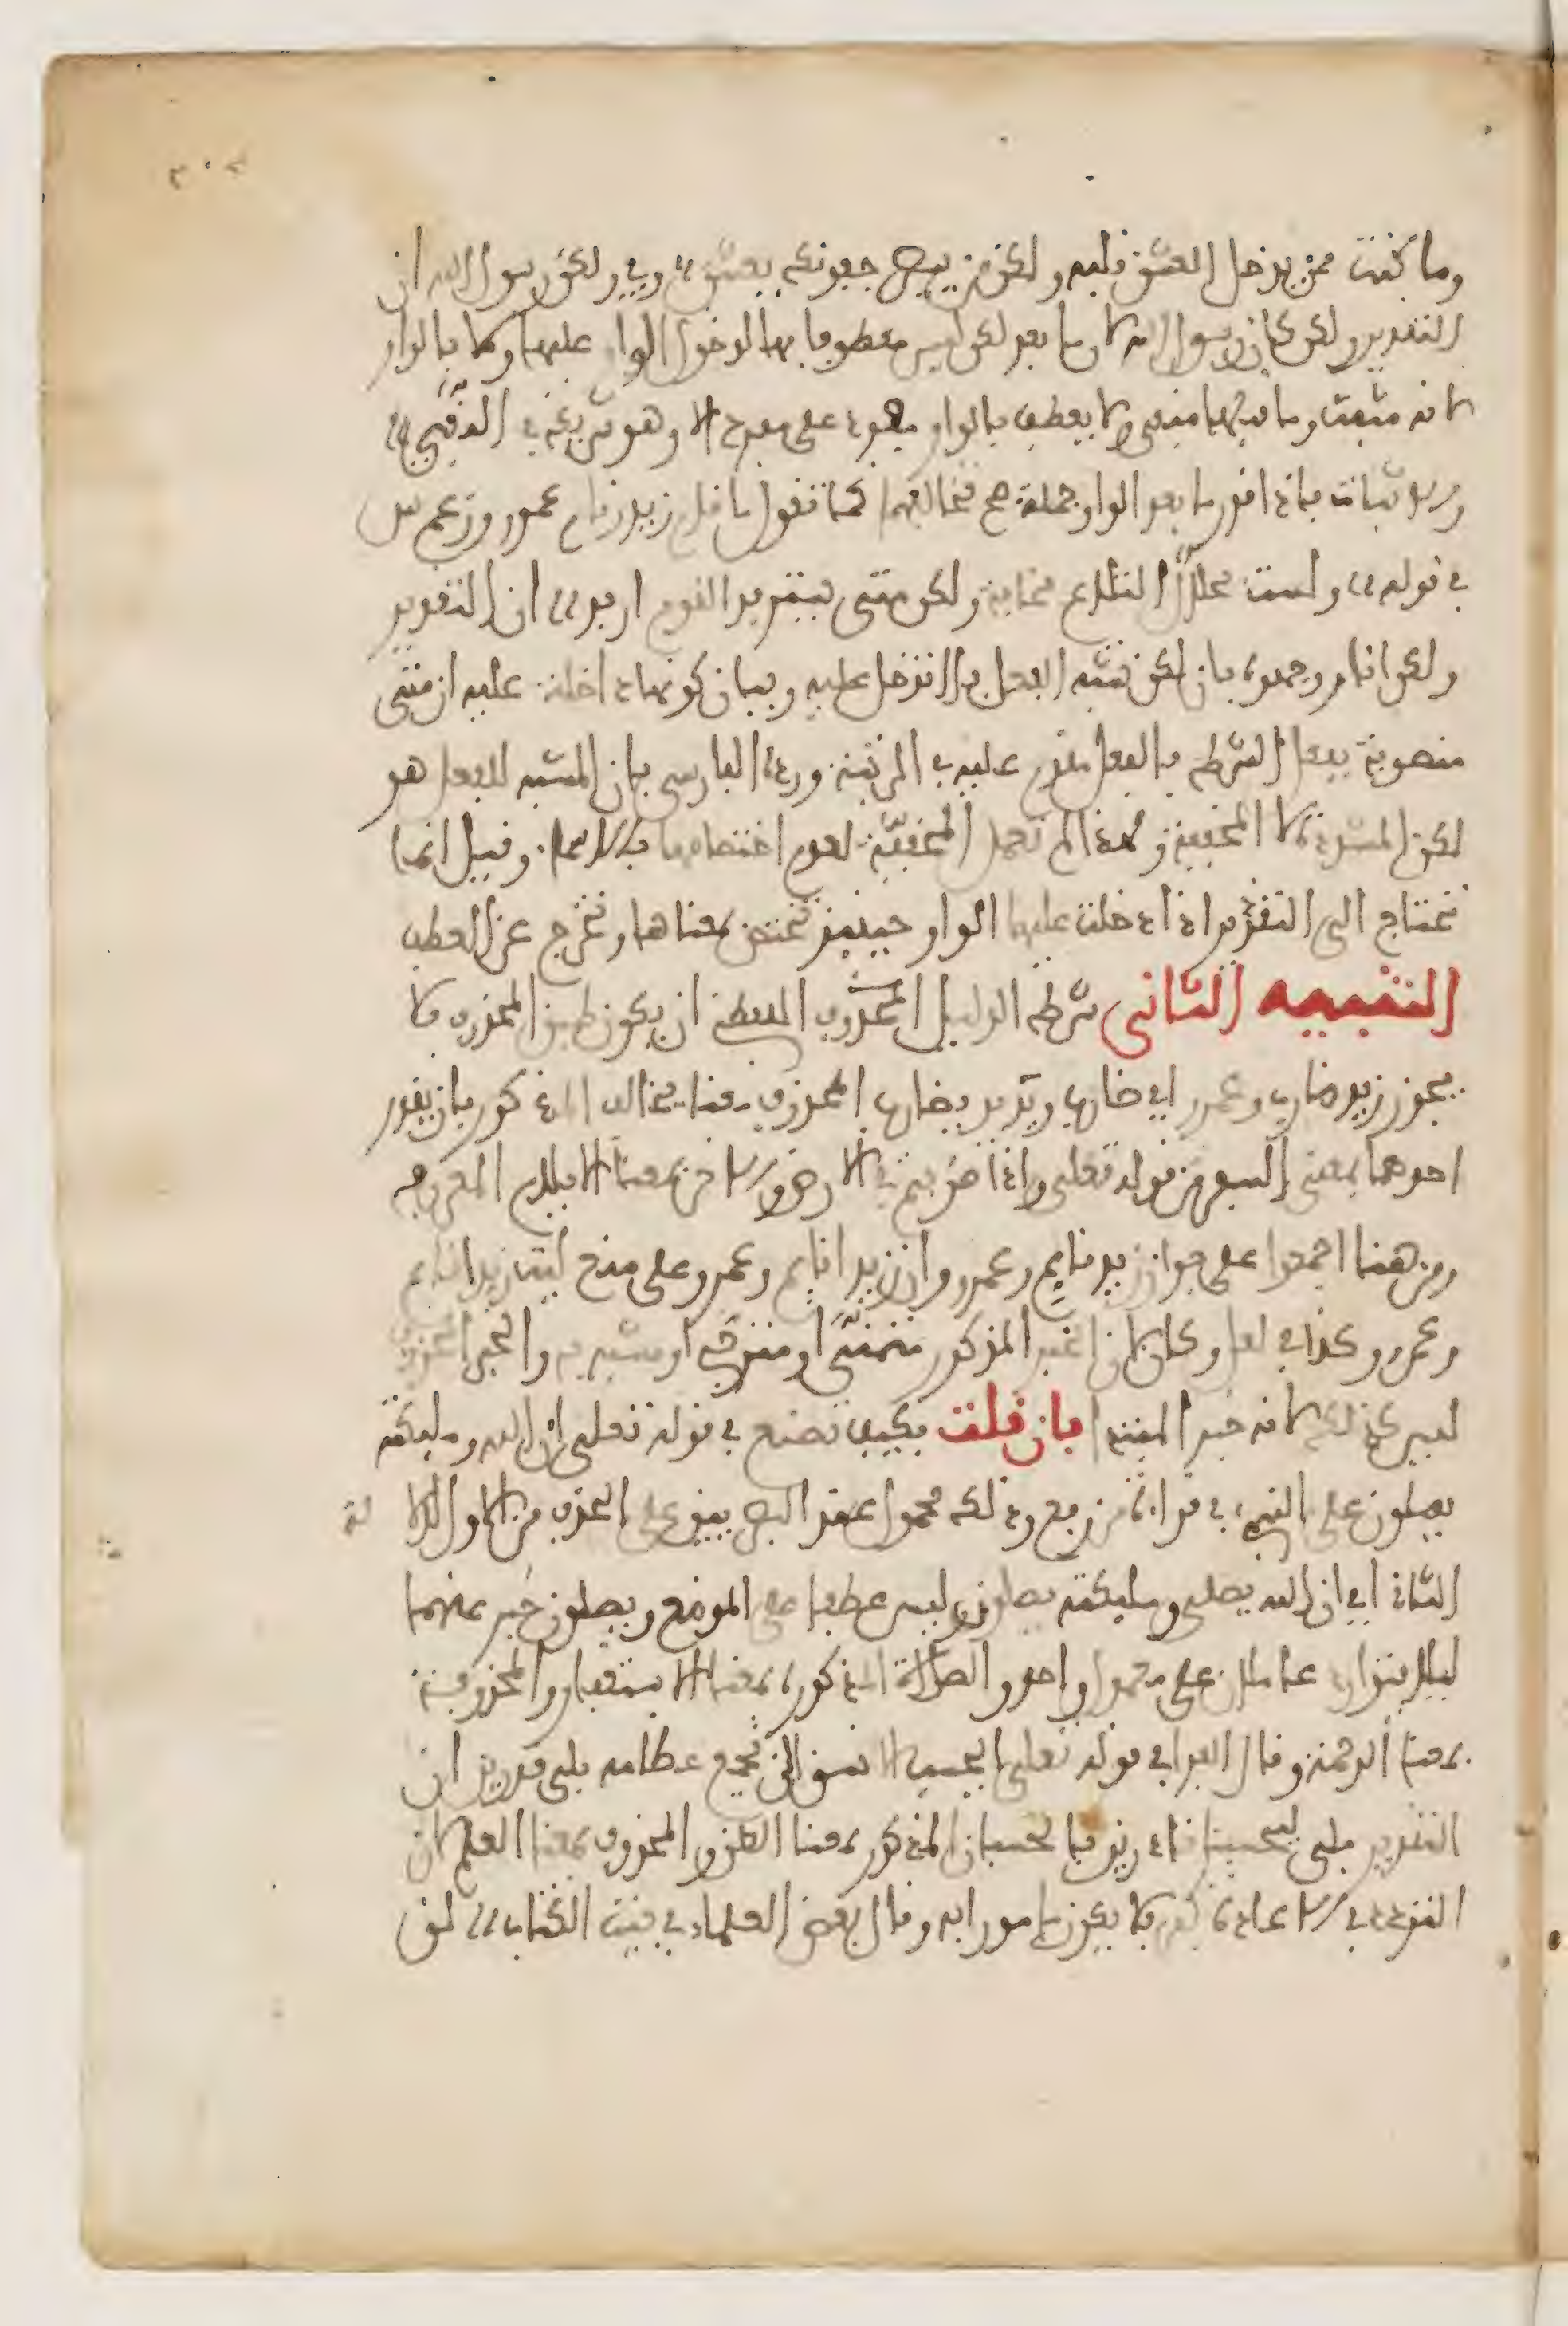 وما كنت ممن يدخل العشق قلبه ولكن من يبصر جفونك يعشق وفي ولكن رسول الله ان
التقدير ولكن كان رسول الله لان ما بعد لكن ليس معطوفا بها لدخول الواو عليها ولا بالواو
لانه مثبت وما قبلها منفي ولا يعطف بالواو مفرد على مفرد الا وهو شريكه في النفي
والاثبات فاذا قدر ما بعد الواو جملة صح تخالفهما كما تقول ما قام زيد وقام عمرو وزعم س
في قوله ولست بحلال التلاع مخافة ولكن متى يسترفد القوم ارفد ان التقدير
ولكن انا ووجهوه بان لكن تشبه الفعل فلا تدخل عليه وبيان كونها داخلة عليه ان متى
منصوبة بفعل الشرط فالفعل مقدم عليه في الرتبة ورده الفارسي بان المشبه للفعل هو
لكن المشددة لا المخففة ولهذا لم تعمل المخففة لعدم اختصاصها بالاسماء وقيل انما
تحتاج الى التقدير اذا دخلت عليها الواو حينئذ تختص بمعناها وتخرج عن العطف
التنبيه الثاني شرط الدليل المحذوف اللفظي ان يكون طبق المحذوف فلا
يجوز زيد ضارب وعمرو اي ضارب وتريد بضارب المحذوف معنا يخالف المذكور بان يقدر
احدهما بمعنى السفر من قوله تعالى واذا ضربتم في الارض والاخر بمعنا الايلام المعروف
ومن هنا اجمعوا على جواز زيد قايم وعمرو وان زيدا قايم وعمرو وعلى منع ليت زيدا قايم
وعمرو وكذا في لعل وكان لان الخبر المذكور متمنى او مترجى او مشبه به والخبر المحذوف
ليس كذلك لانه خبر المبتدا فان قلت فكيف تصنع في قوله تعالى ان الله ومليكته
يصلون على النبيء في قراءة من رفع وذلك محمول عند البصريين على الحذف من الاول لدلالة
الثاني اي ان الله يصلي ومليكته يصلون وليس عطفا على الموضع ويصلون خبر عنهما
ليلا يتوارد عاملان على معمول واحد والصلاة المذكورة بمعنا الاستغفار والمحذوفة
بمعنا الرحمة وقال الفرا في قوله تعالى ايحسب الانسن الن نجمع عظامه بلى قدرين ان
التقدير بلى ليحسبنا قادرين فالحسبان المذكور بمعنا الظن والمحذوف بمعنا العلم لان
التردد في الاعادة كفر فلا يكون مامورا به وقال بعض العلماء في بيت الكتاب لن